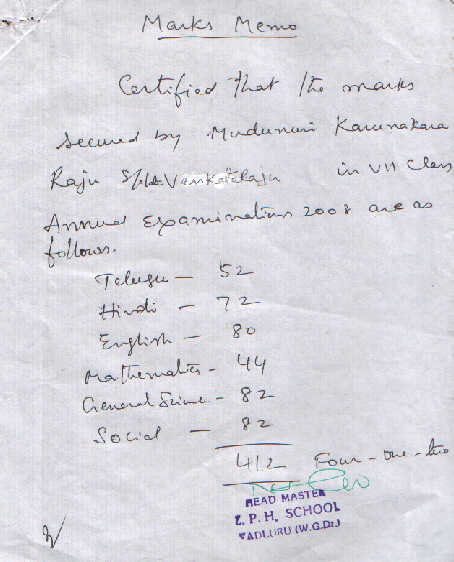 Marks Memo
Certified that the marks
secured by Mudunuri Karunakara
Raju S/o Venkata Raju in VII Class
Annual Examinations 2008 are as
follows.
Telugu — 52
Hindi — 72
English — 80
Mathematics - 44
General Science - 82
Social — 82
412 Four - one - two
HEAD MASTER
Z. P. H. SCHOOL
VADLURU (W.G.Dt.)